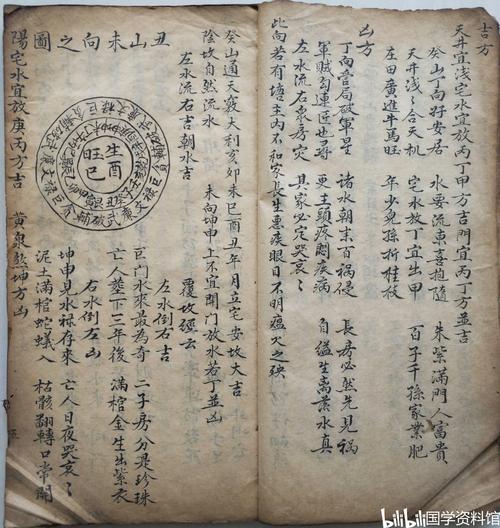 吉方
天井宜浅宅水宜放丙丁甲方吉門宜丙丁方並吉
癸山丁向好安居 水要流東喜抱隨 朱紫滿門人富貴
天井浅々合天机 宅水放丁宜出甲 百子千孫家業肥
左田廣進牛馬旺 年少兒孫折桂枝
凶方
丁向当局破軍星 諸水朝来百禍侵 長房必然先見禍
軍賊勾連匠也尋 更主頭疼悶疾病 自縊生离落水真
左水流右衆房灾 其家必定哭哀々
此向若有塘主内不和家長生患疾眼目不明瘟火之殃
丑山未向之圖
生酉
旺巳
癸山通天竅大利亥卯未巳酉丑年月立宅安坟大吉
陰坟自然流水 未向坤申上不宜開門放水若丁並凶
左水流右吉朝水吉 覆坟經云
左水倒右吉
巨門水来最為奇 二子房分是珍珠
亡人塟下三年後 滿棺金生出紫衣
右水倒左凶
坤申見水禄存来 亡人日夜哭哀々
泥土滿棺蛇蟻入 枯骸翻轉口常開
陽宅水宜放庚丙方吉 黄泉欵坤方凶
bilibili 国学资料馆